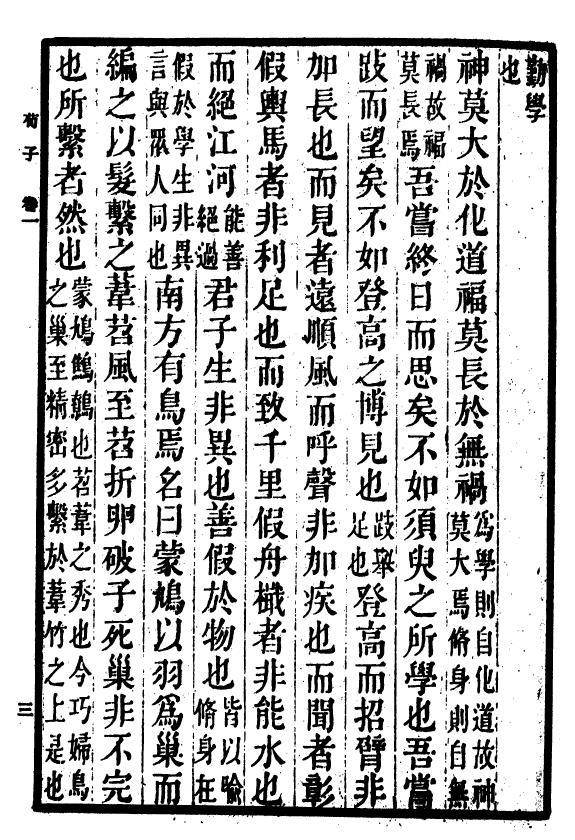 勤學
也
神莫大於化道福莫長於無禍爲學則自化道故神莫大焉脩身則自無
禍故福莫長焉吾嘗終日而思矣不如須臾之所學也吾嘗
跂而望矣不如登高之博見也跂舉足也登高而招臂非
加長也而見者遠順風而呼聲非加疾也而聞者彰
假輿馬者非利足也而致千里假舟檝者非能水也
而絕江河能善絕過君子生非異也善假於物也皆以喻脩身在
假於學生非異言與眾人同也南方有鳥焉名曰蒙鳩以羽爲巢而
編之以髮繫之葦苕風至苕折卵破子死巢非不完
也所繫者然也蒙鳩鷦鷯也苕葦之秀也今巧婦鳥之巢至精密多繫於葦竹之上是也
荀子 卷一
三